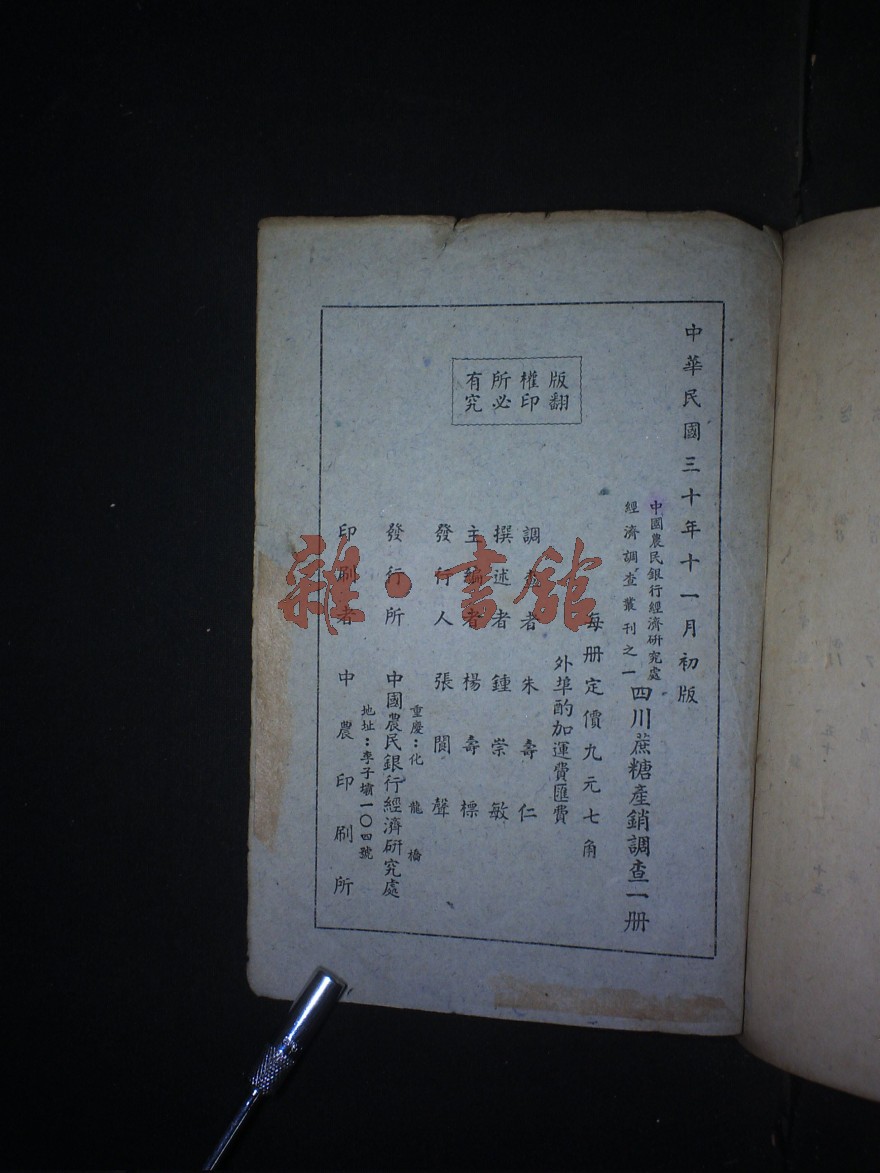 中華民國三十年十一月初版
中國農民銀行經濟研究處
經濟調查叢刊之一
四川蔗糖產銷調查一冊
每册定價九元七角
外埠酌加運費匯費
調查者 朱壽仁
撰述者 鍾崇敏
主編者 楊壽標
發行人 張閬聲
發行所 中國農民銀行經濟研究處
重慶：化龍橋
地址：李子壩一〇四號
印刷者 中農印刷所
版權所有
翻印必究
雜·書館